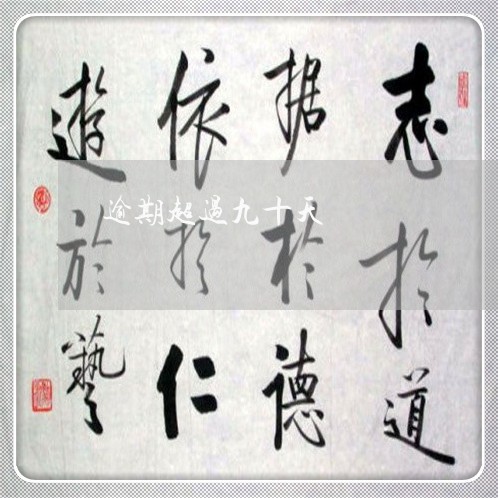 志於道
据於德
依於仁
遊於藝
逾期起过九十天